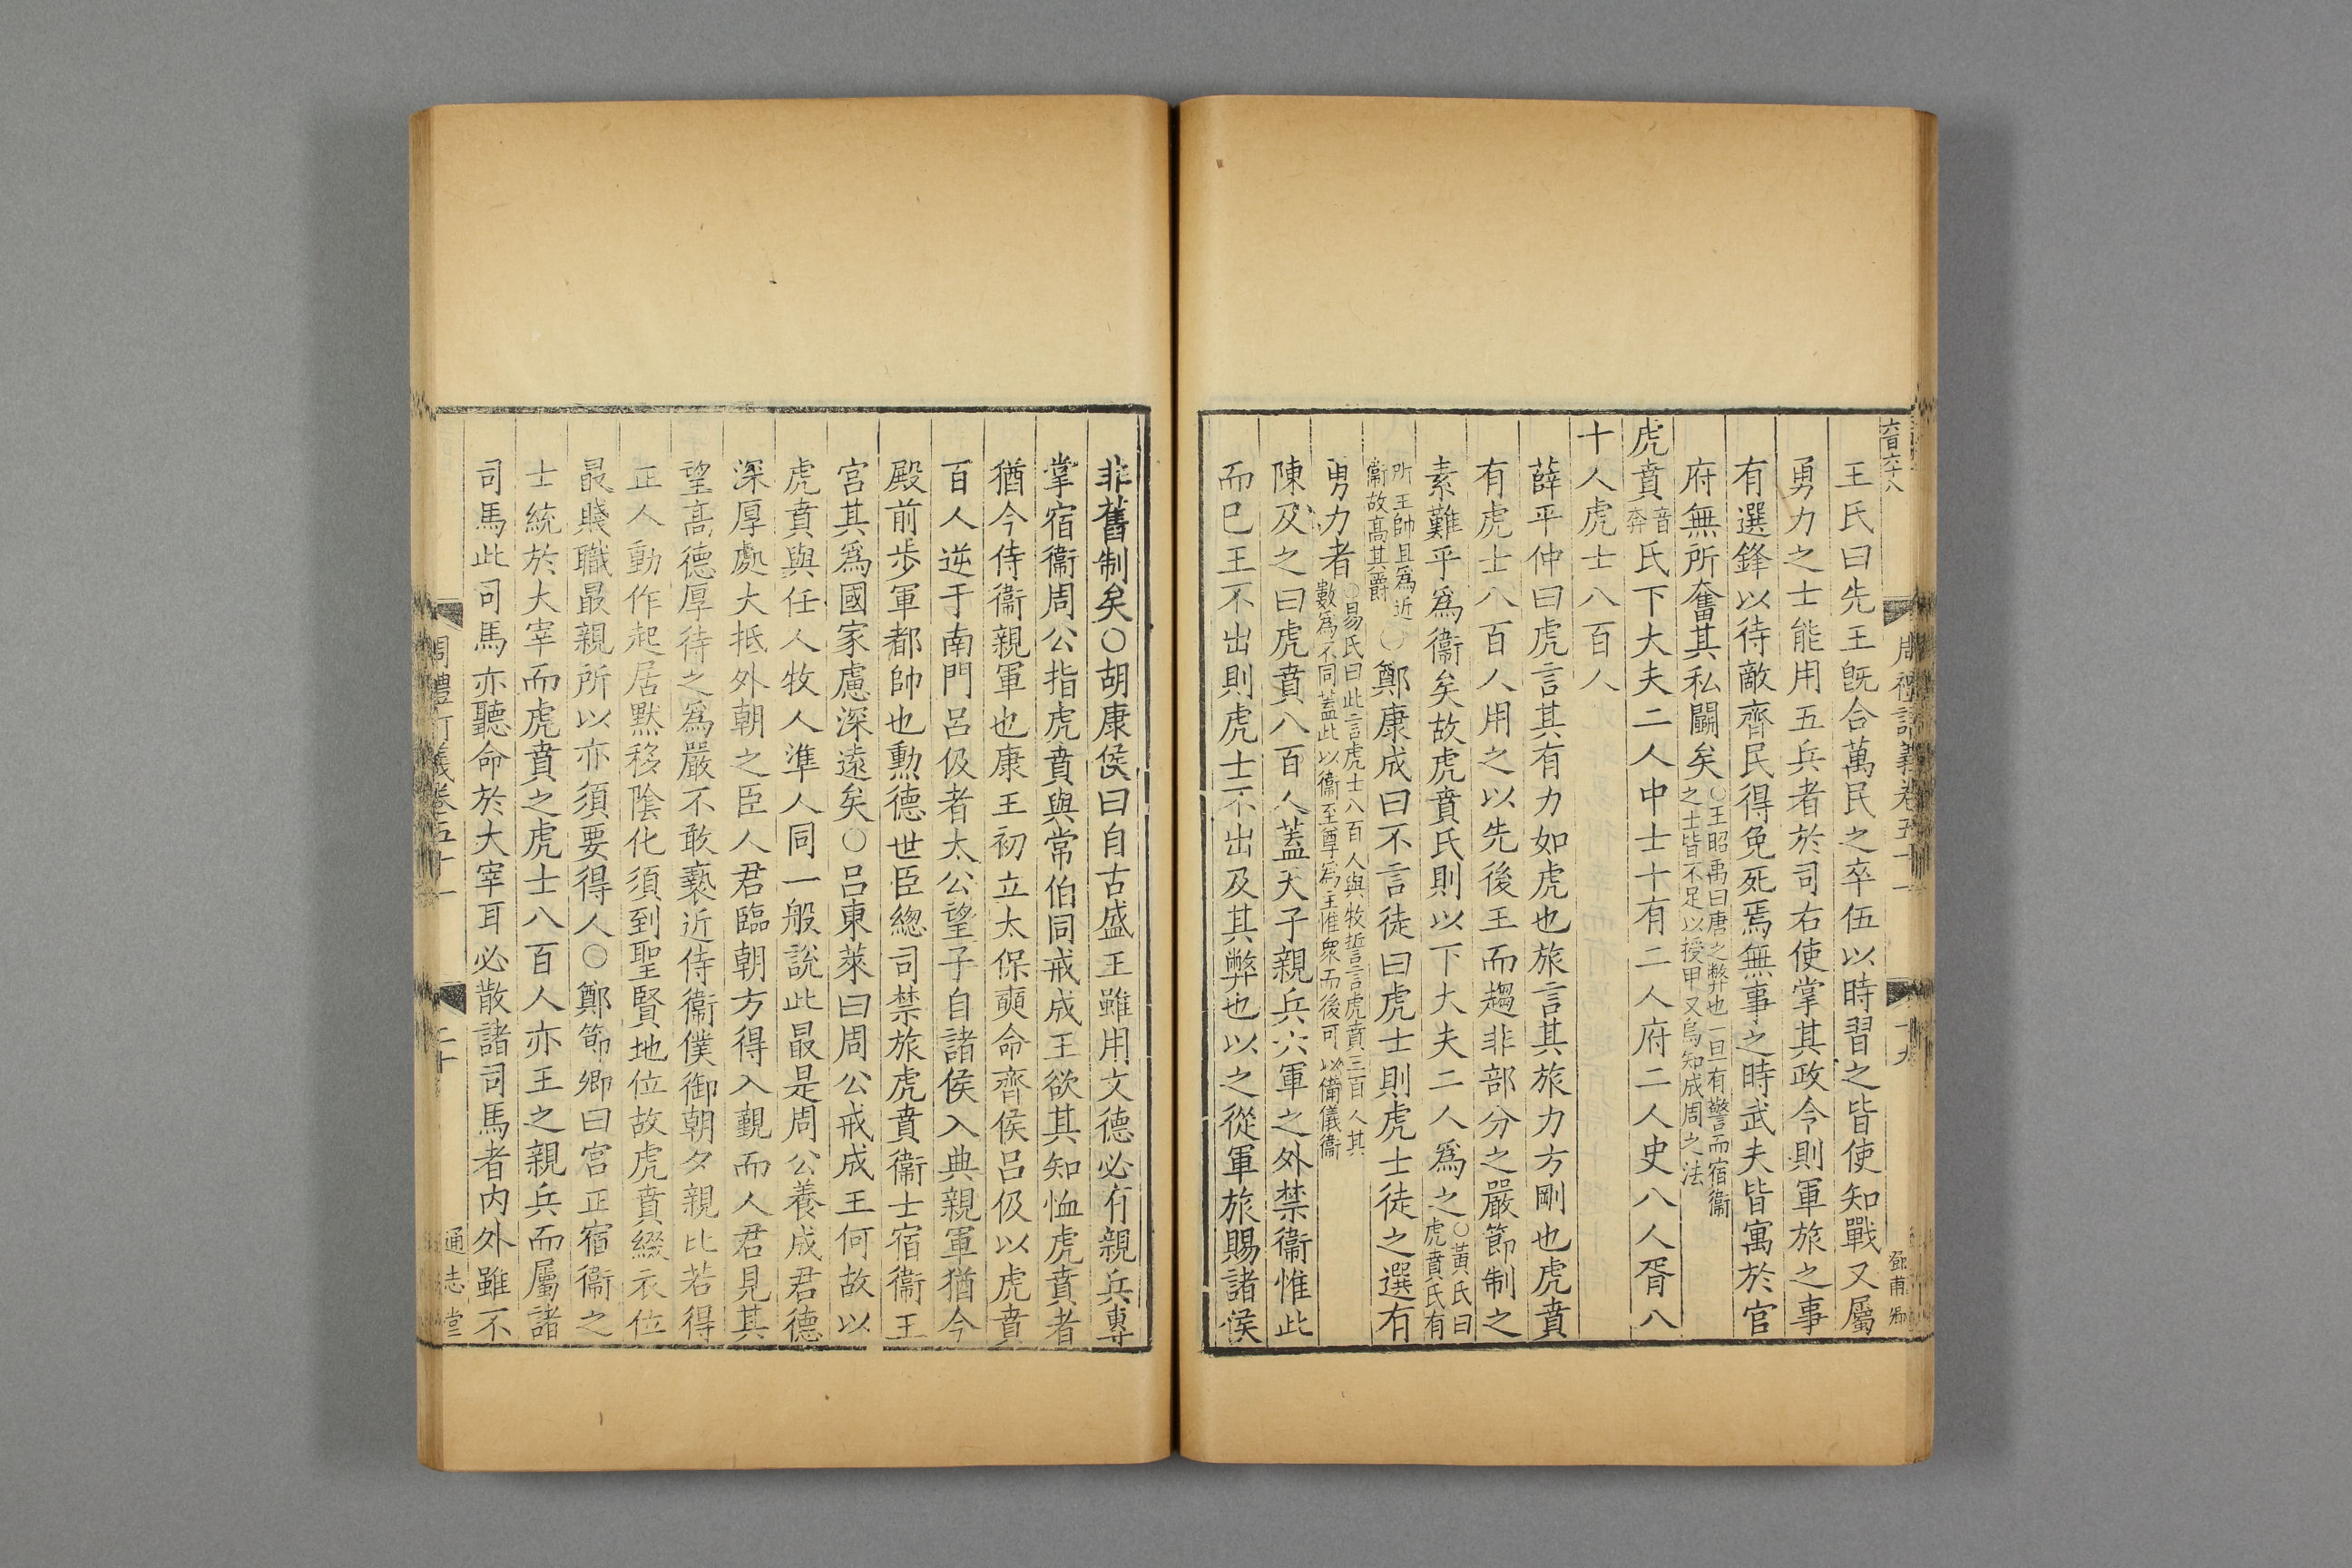 六百六十八
周禮訂義卷五十一
十九
鄧甫卿
王氏曰先王旣合萬民之卒伍以時習之皆使知戰又屬
勇力之士能用五兵者於司右使掌其政令則軍旅之事
有選鋒以待敵齊民得免死焉無事之時武夫皆寓於官
府無所奮其私鬬矣○王昭禹曰唐之弊也一旦有警而宿衞之士皆不足以授甲又烏知成周之法
虎賁音奔氏下大夫二人中士十有二人府二人史八人胥八
十人虎士八百人
薛平仲曰虎言其有力如虎也旅言其旅力方剛也虎賁
有虎士八百人用之以先後王而趨非部分之嚴節制之
素難乎爲衞矣故虎賁氏則以下大夫二人爲之○黃氏曰虎賁氏有
所王帥且爲近衞故髙其爵○鄭康成曰不言徒曰虎士則虎士徒之選有
勇力者○易氏曰此言虎士八百人與牧誓言虎賁三百人其數爲不同蓋此以衞至尊爲主惟衆而後可以備儀衞
陳及之曰虎賁八百人蓋天子親兵六軍之外禁衞惟此
而巳王不出則虎士不出及其弊也以之從軍旅賜諸侯
非舊制矣○胡康侯曰自古盛王雖用文德必有親兵專
掌宿衞周公指虎賁與常伯同戒成王欲其知恤虎賁者
猶今侍衞親軍也康王初立太保奭命齊侯呂伋以虎賁
百人逆于南門呂伋者太公望子自諸侯入典親軍猶今
殿前步軍都帥也勲德世臣總司禁旅虎賁衞士宿衞王
宫其爲國家慮深遠矣○呂東萊曰周公戒成王何故以
虎賁與任人牧人準人同一般說此最是周公養成君德
深厚處大抵外朝之臣人君臨朝方得入覲而人君見其
望髙德厚待之爲嚴不敢褻近侍衞僕御朝夕親比若得
正人動作起居默移陰化須到聖賢地位故虎賁綴衣位
最賤職最親所以亦須要得人○鄭節卿曰宫正宿衞之
士統於大宰而虎賁之虎士八百人亦王之親兵而屬諸
司馬此司馬亦聽命於大宰耳必散諸司馬者内外雖不
周禮訂義卷五十一
二十
通志堂